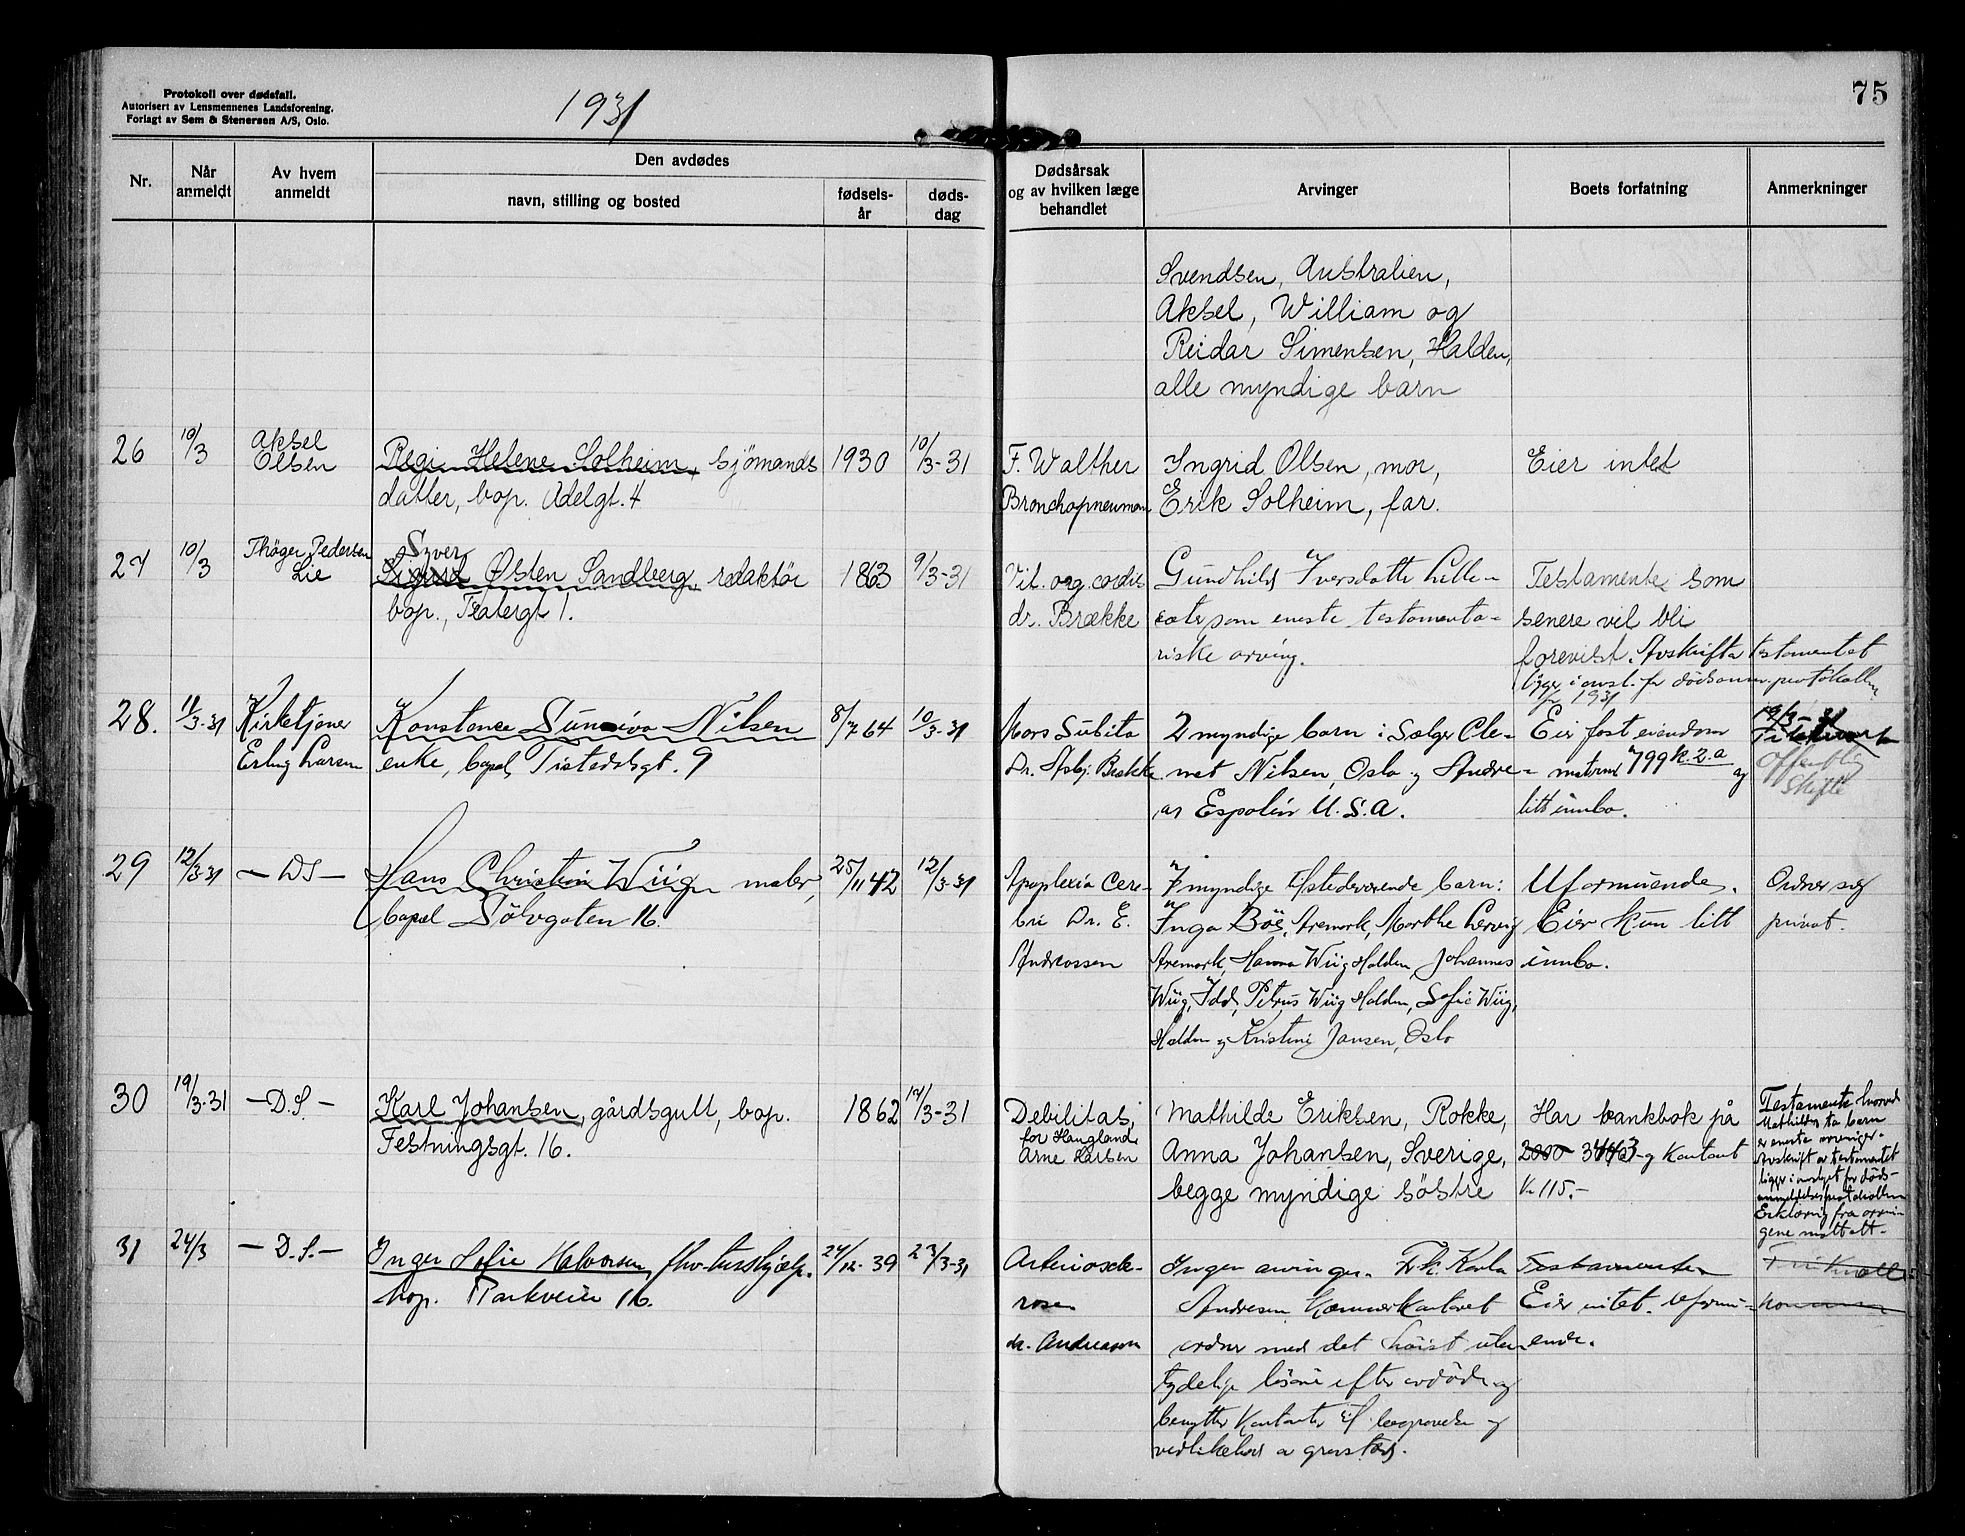 Protokoll over dødsfall.
Autorisert av Lensmennenes Landsforening.
Forlagt av Sem & Stenersen A/S, Oslo.
1931
75
Nr.
Når anmeldt
Av hvem anmeldt
Den avdødes
navn, stilling og bosted
fødsels-år
døds-dag
Dødsårsak og av hvilken læge behandlet
Arvinger
Boets forfatning
Anmerkninger
Svendsen, Australien,
Aksel, William og
Reidar Simensen, Halden,
alle myndige barn
26
10/3
Aksel
Olsen
Regi Helene Solheim, sjömands
datter, bop. Adelgt. 4
1930
10/3-31
F. Walther
Bronchopneumon
Ingrid Olsen, mor,
Erik Solheim, far.
Eier intet
27
10/3
Thöger Pedersen
Lie
Syver
Sigurd Østen Sandberg, redaktör
bop., Teatergt 1.
1863
9/3-31
Vit. org. cordis
dr. Brække
Gundhild Iversdatter Lille-
sæter som eneste testamenta-
riske arving.
Testamente som
senere vil bli
forevist. Avskrift a testamentet
ligger i omsl. for dödsanm. protokollen
for 1931
28.
11/3-31
Kirketjener
Erling Larsen
Konstance Sunniva Nilsen
enke, bopel Tistedalsgt. 9
8/7 64
10/3-31
Mors Subita
Dr. Asbj. Brække
2 myndige barn: Sælger Cle-
met Nilsen, Oslo og Andre-
as Espolin U.S.A.
Eier fast eiendom
matrnr 799 k.2.a og
litt innbo.
19/3-31
Offentlig
Skifte
29
12/3-31
- DS -
Hans Christian Wiig maler,
bopel Sölvgaten 16.
25/11 42
12/3-31
Apoplexia Cere-
bri Dr. E.
Andreassen
7 myndige tilstedeværende barn:
Inga Böe, Aremark, Marthe Lervig
Aremark, Hanna Wiig Halden, Johannes
Wiig, Idd, Petrus Wiig Halden, Sofie Wiig,
Halden og Kristine Jansen, Oslo
Uformuende.
Eier kun litt
innbo.
Ordner seg
privat.
30
19/3-31
- D.S. -
Karl Johansen, gårdsgutt, bop.
Festningsgt. 16.
1862
17/3-31
Debilitas,
for Haugland
Arne Larsen
Mathilde Eriksen, Rokke,
Anna Johansen, Sverige,
begge myndige söstre
Har bankbok på
2000 3463 og kontant
Kr 115.-
Testamente hvorved
Mathildes to barn
er eneste arvinger.
Avskrift av testamentet
ligger i omslaget for döds-
anmeldelsesprotokollen
Erklæring fra arvin-
gene mottatt.
31
24/3
- D.S. -
Inger Sofie Halvorsen, fhv. hushjelp.
bop. Parkveien 16.
24/12-39
23/3-31
Arteriosckle-
rosen
dr. Andreassen
Ingen arvinger. Frk. Karla
Andresen Kæmnerkontoret
ordner med det höist ube-
tydelige lösöre efter avdöde og
benytter kontanter til begravelse og
vedlikehold av gravsted.
Testamenter
Eier intet. Uformu-
ende.